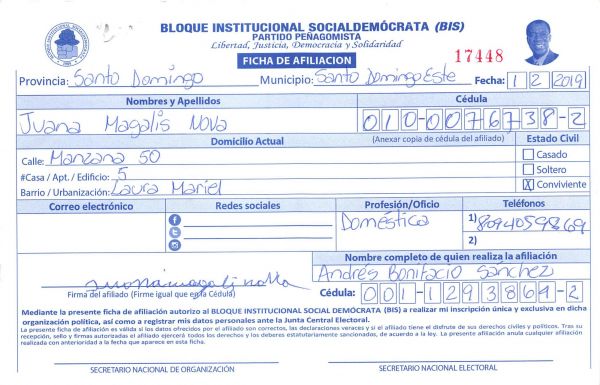 BLOQUE INSTITUCIONAL SOCIALDEMÓCRATA (BIS)
PARTIDO PEÑAGOMISTA
Libertad, Justicia, Democracia y Solidaridad
FICHA DE AFILIACION
17448
Provincia: Santo Domingo Municipio: Santo Domingo Este Fecha: 1 2 2019
Nombres y Apellidos Cédula
Juana Magalis Nova 010-0076738-2
Domicilio Actual (Anexar copia de cédula del afiliado) Estado Civil
Calle: Manzana 50 Casado
#Casa / Apt. / Edificio: 5 Soltero
Barrio / Urbanización: Laura Mariel X Conviviente
Correo electrónico Redes sociales Profesión/Oficio Teléfonos
Doméstica 1) 8094059869
2)
Nombre completo de quien realiza la afiliación
Andrés Bonifacio Sánchez
Firma del afiliado (Firme igual que en la Cédula) Cédula: 001-1293869-2
Mediante la presente ficha de afiliación autorizo al BLOQUE INSTITUCIONAL SOCIAL DEMÓCRATA (BIS) a realizar mi inscripción única y exclusiva en dicha
organización política, así como a registrar mis datos personales ante la Junta Central Electoral.
La presente ficha de afiliación es valida si los datos ofrecidos por el afiliado son correctos, las declaraciones veraces y si el afiliado tiene el disfrute de sus derechos civiles y políticos. Tras su
recepción, sello y firmas autorizadas el afiliado ejercerá todos los derechos y los deberes estatutariamente sancionados, de acuerdo a la ley. La presente afiliación anula cualquier afiliación
realizada con anterioridad a la fecha que aparece en esta ficha.
SECRETARIO NACIONAL DE ORGANIZACIÓN SECRETARIO NACIONAL ELECTORAL